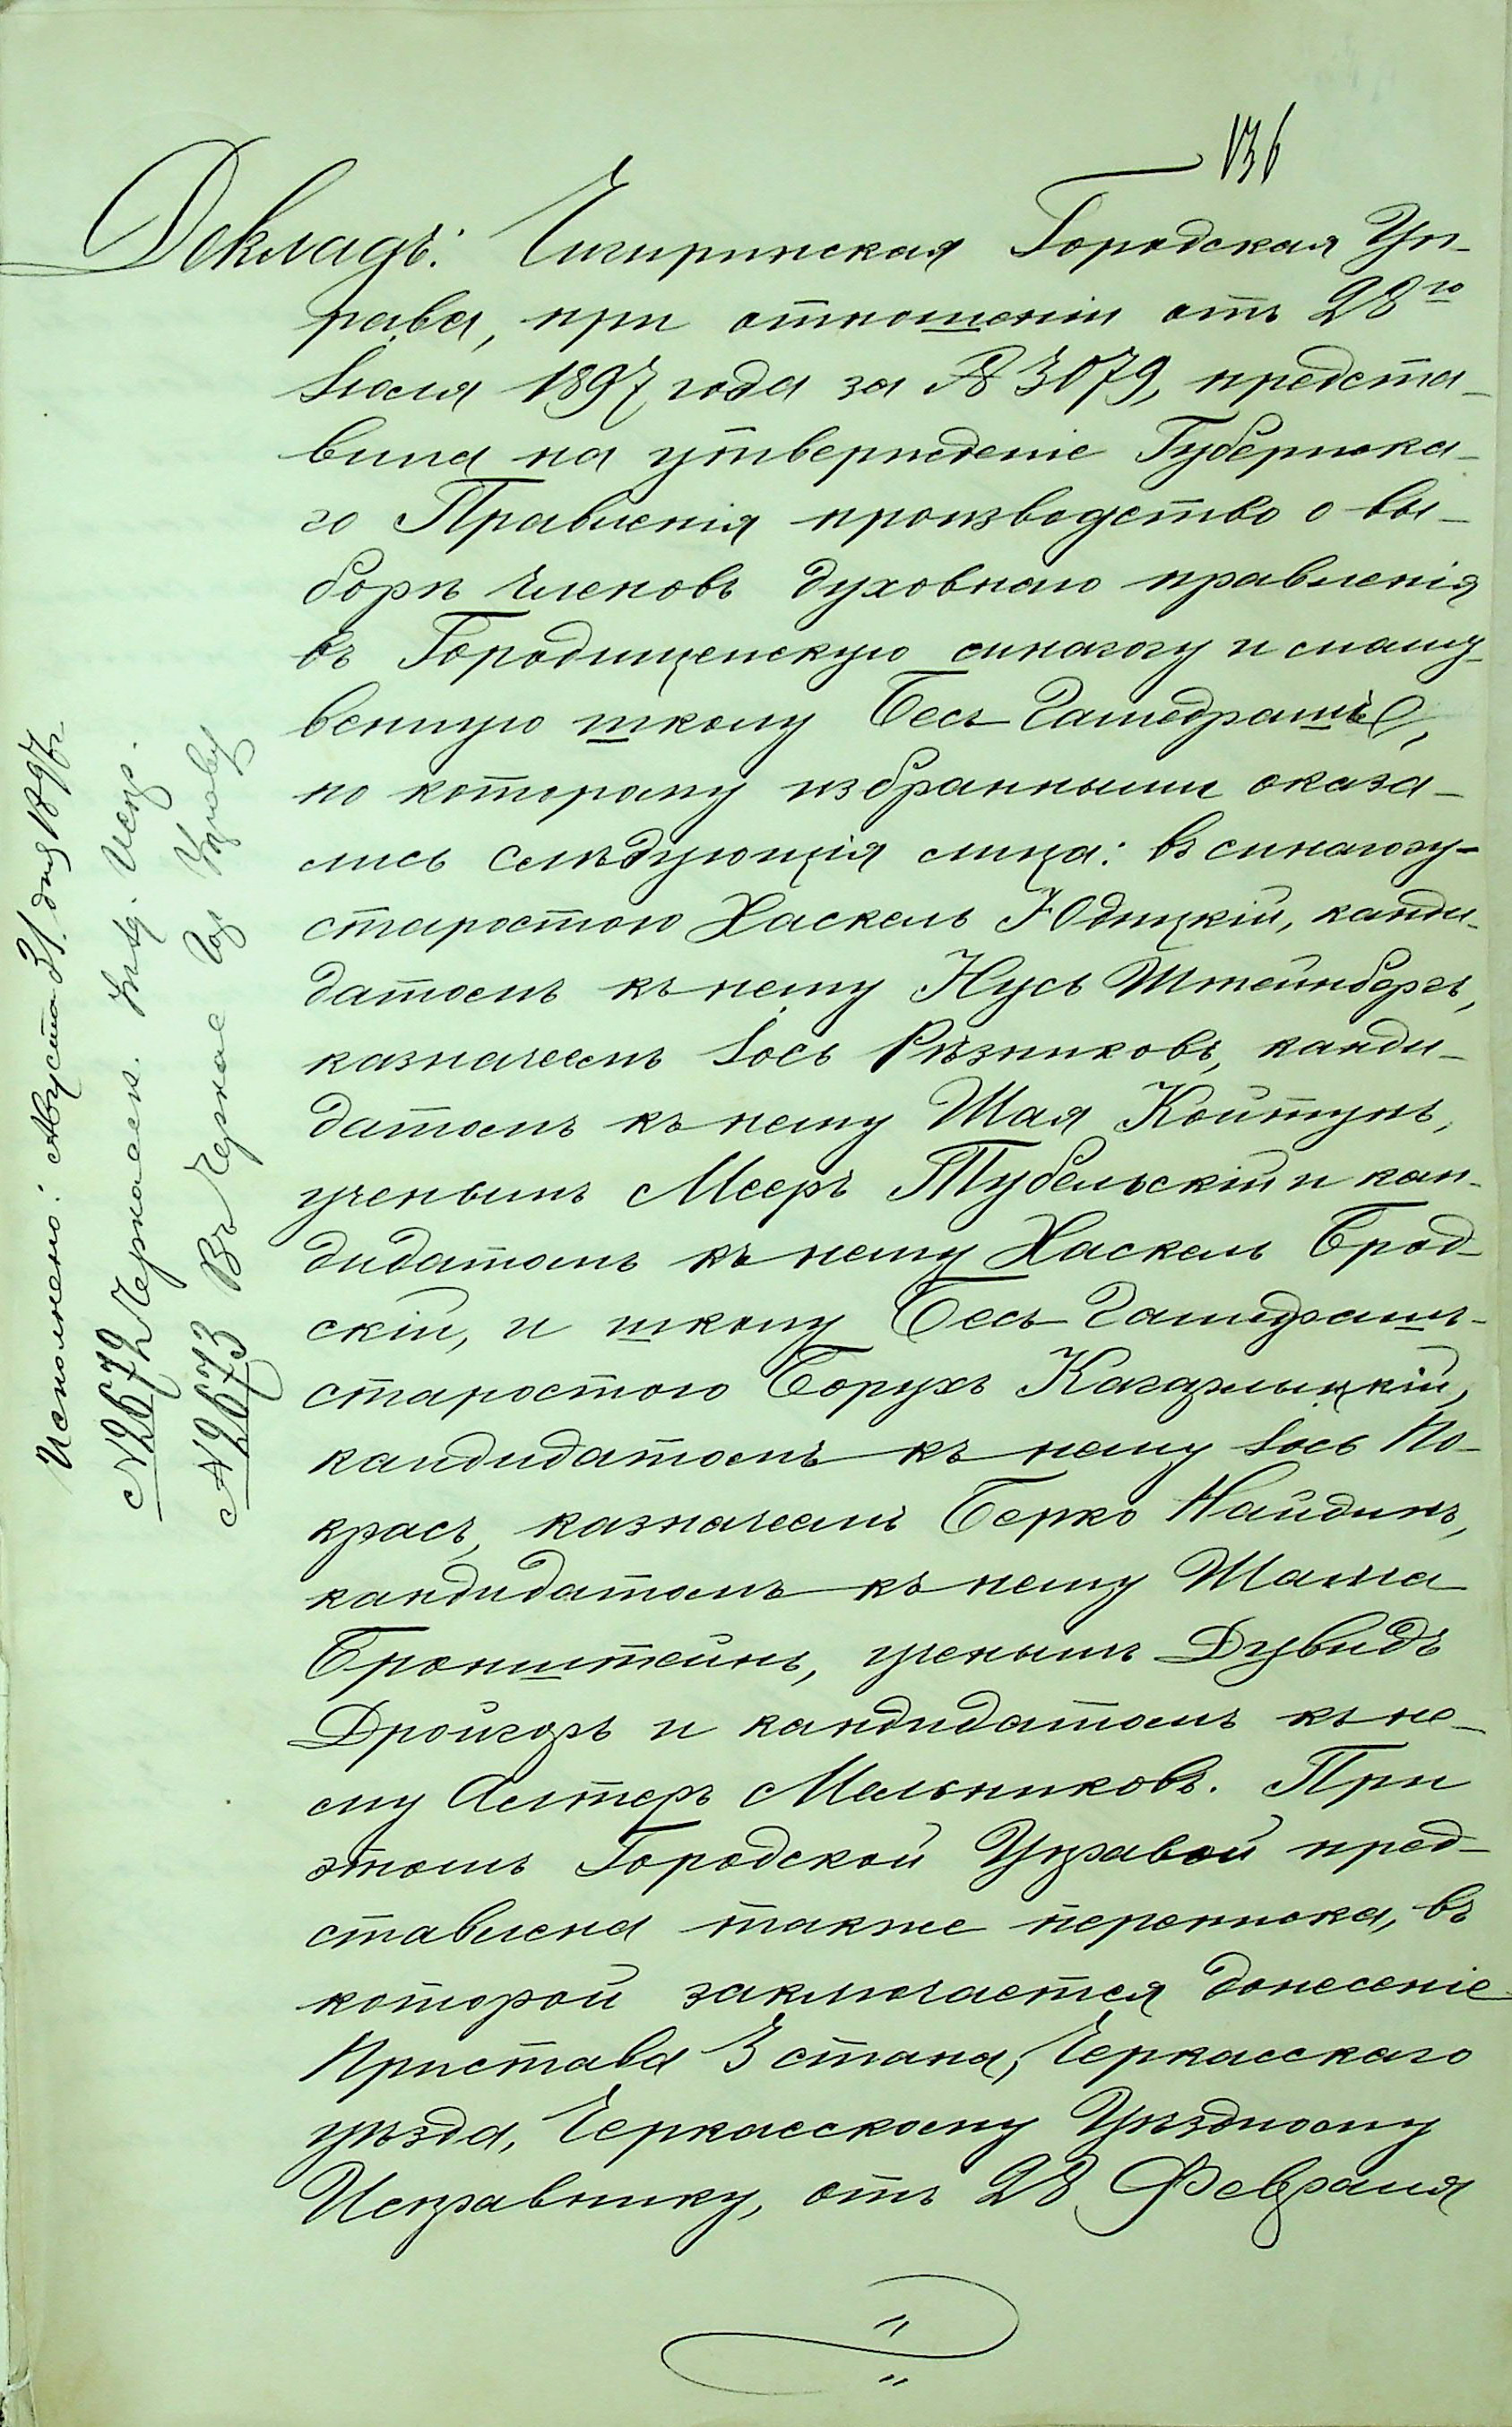 136
Докладъ: Чигиринская Городская Уп-
рава, при отношеніи отъ 28го
Іюля 1897 года за № 3079, предста-
вила на утвержденіе Губернска-
го Правленія производство о вы-
борѣ членовъ духовнаго правленія
въ Городищенскую синагогу и молит-
венную школу Бесъ-Гамедрашъ,
по которому избранными оказа-
лись слѣдующія лица: въ синагогу-
старостою Хаскель Юдицкій, канди-
датомъ къ нему Нусь Штейнбергъ,
казначеемъ Іось Рѣзниковъ, канди-
датомъ къ нему Шая Койтунъ,
ученымъ Мееръ Тубельскій и кан-
дидатомъ къ нему Хаскель Брод-
скій, и школу Бесъ-Гамедрашъ-
старостою Борухъ Кагарлыцкій,
кандидатомъ къ нему Іось По-
красъ, казначеемъ Берко Найдинъ,
кандидатомъ къ нему Шама
Бронштейнъ, ученымъ Дувидъ
Дройзоръ и кандидатомъ къ не-
му Алтеръ Мельниковъ. При
этомъ Городской Управой пред-
ставлена также переписка, въ
которой заключается донесеніе
Пристава 3 стана, Черкасскаго
уѣзда, Черкасскому Уѣздному
Исправнику, отъ 28 Февраля
Исполнено: Августа 31 дня 1897 г.
№ 2672 Черкасск. Уѣзд. Испр.
№ 2673 Въ Черкас. Гор. Управу